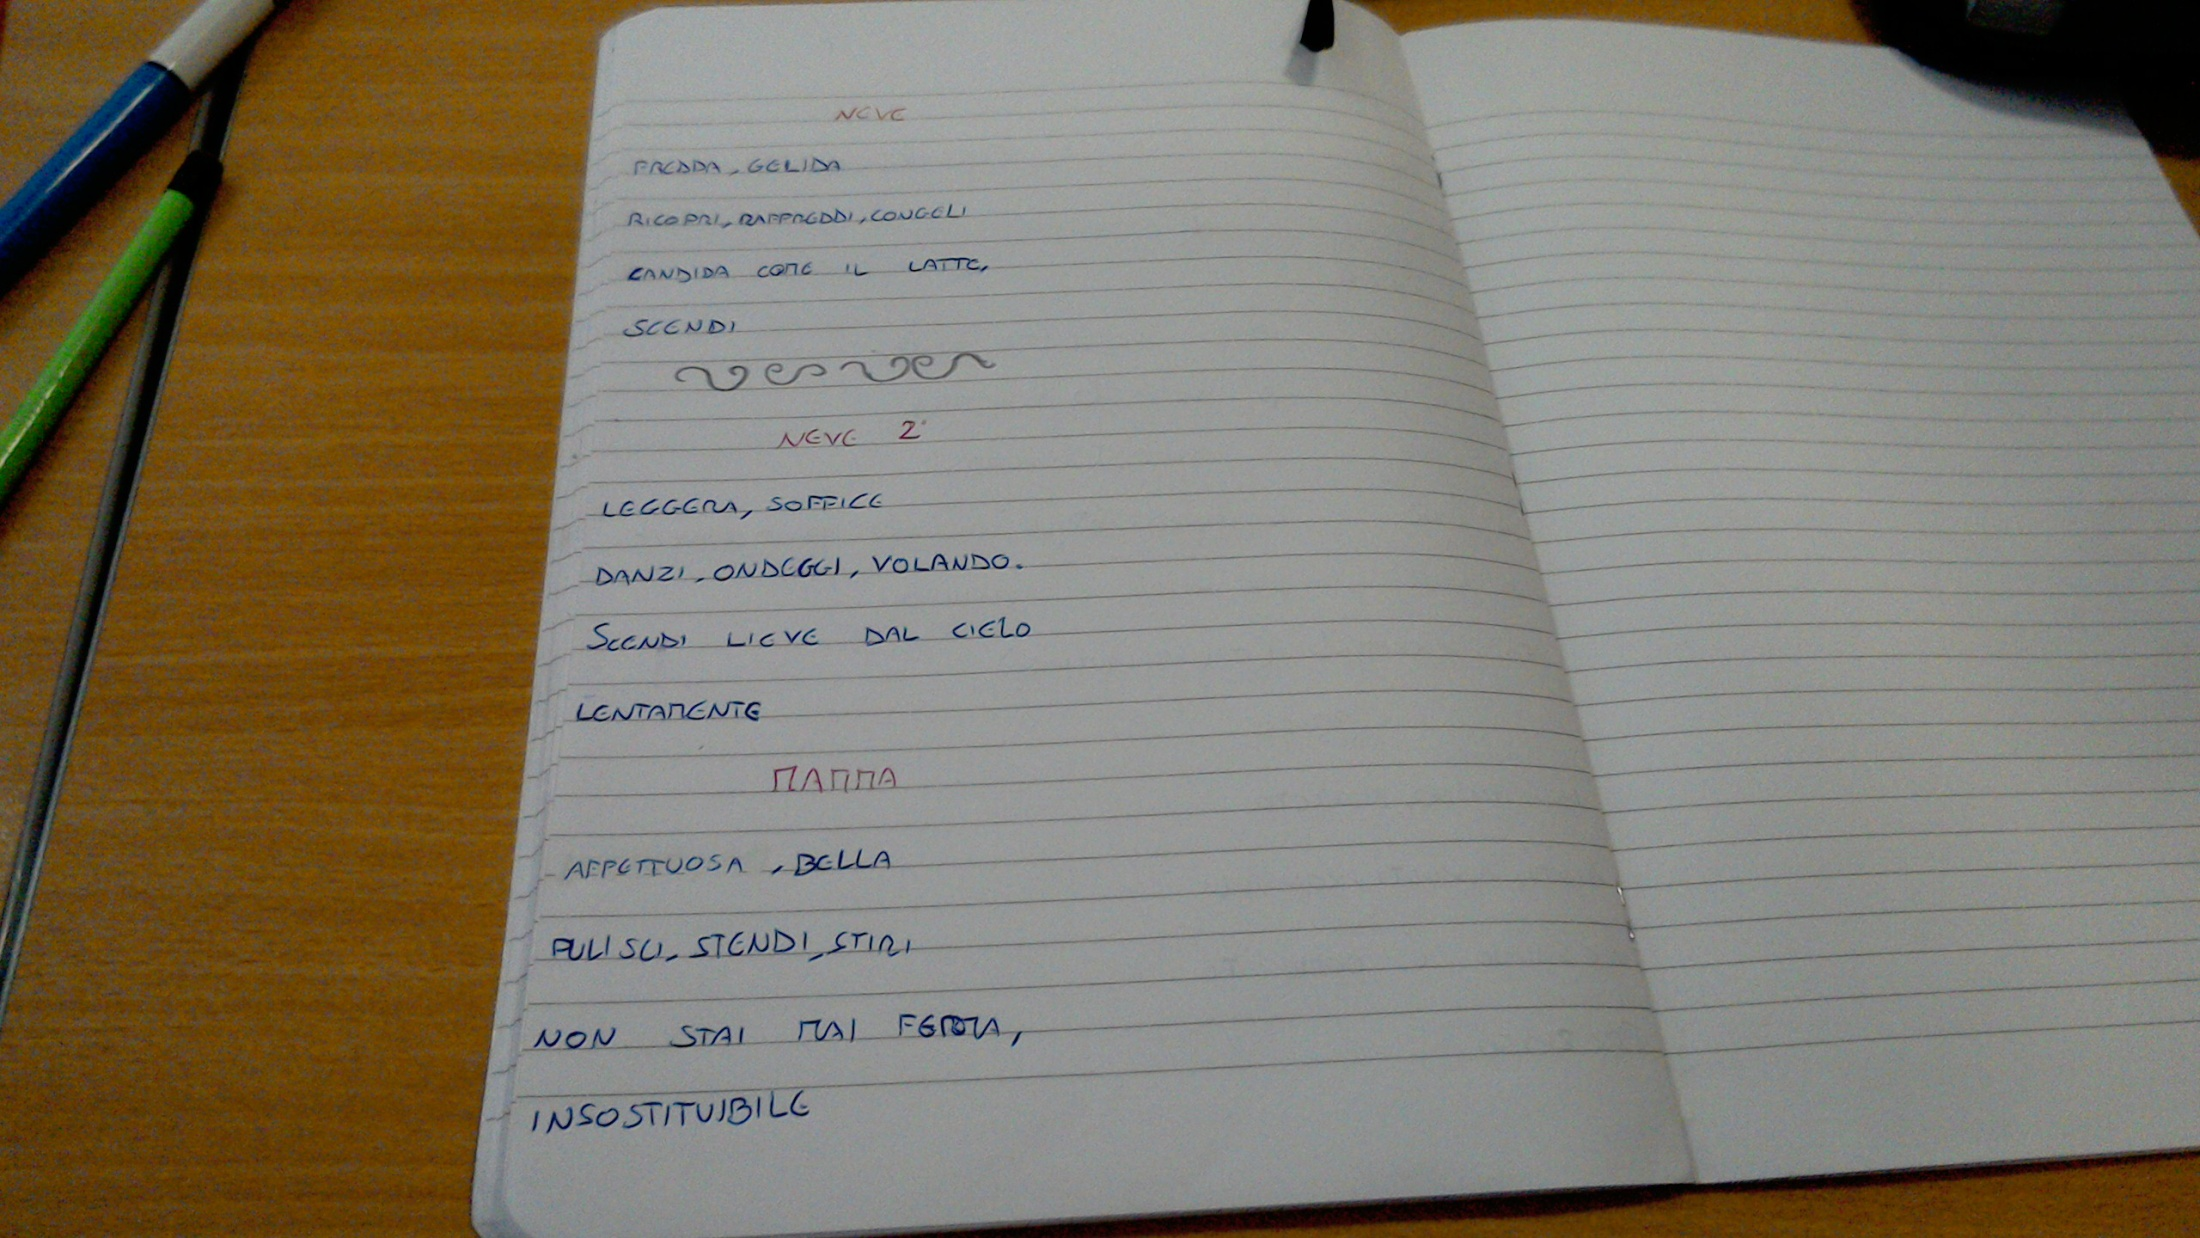 NEVE
FREDDA, GELIDA
RICOPRI, RAFFREDDI, CONGELI
CANDIDA COME IL LATTE,
SCENDI
NEVE 2
LEGGERA, SOFFICE
DANZI, ONDEGGI, VOLANDO.
SCENDI LIEVE DAL CIELO
LENTAMENTE
MAMMA
AFFETTUOSA, BELLA
PULISCI, STENDI, STIRI
NON STAI MAI FERMA,
INSOSTITUIBILE